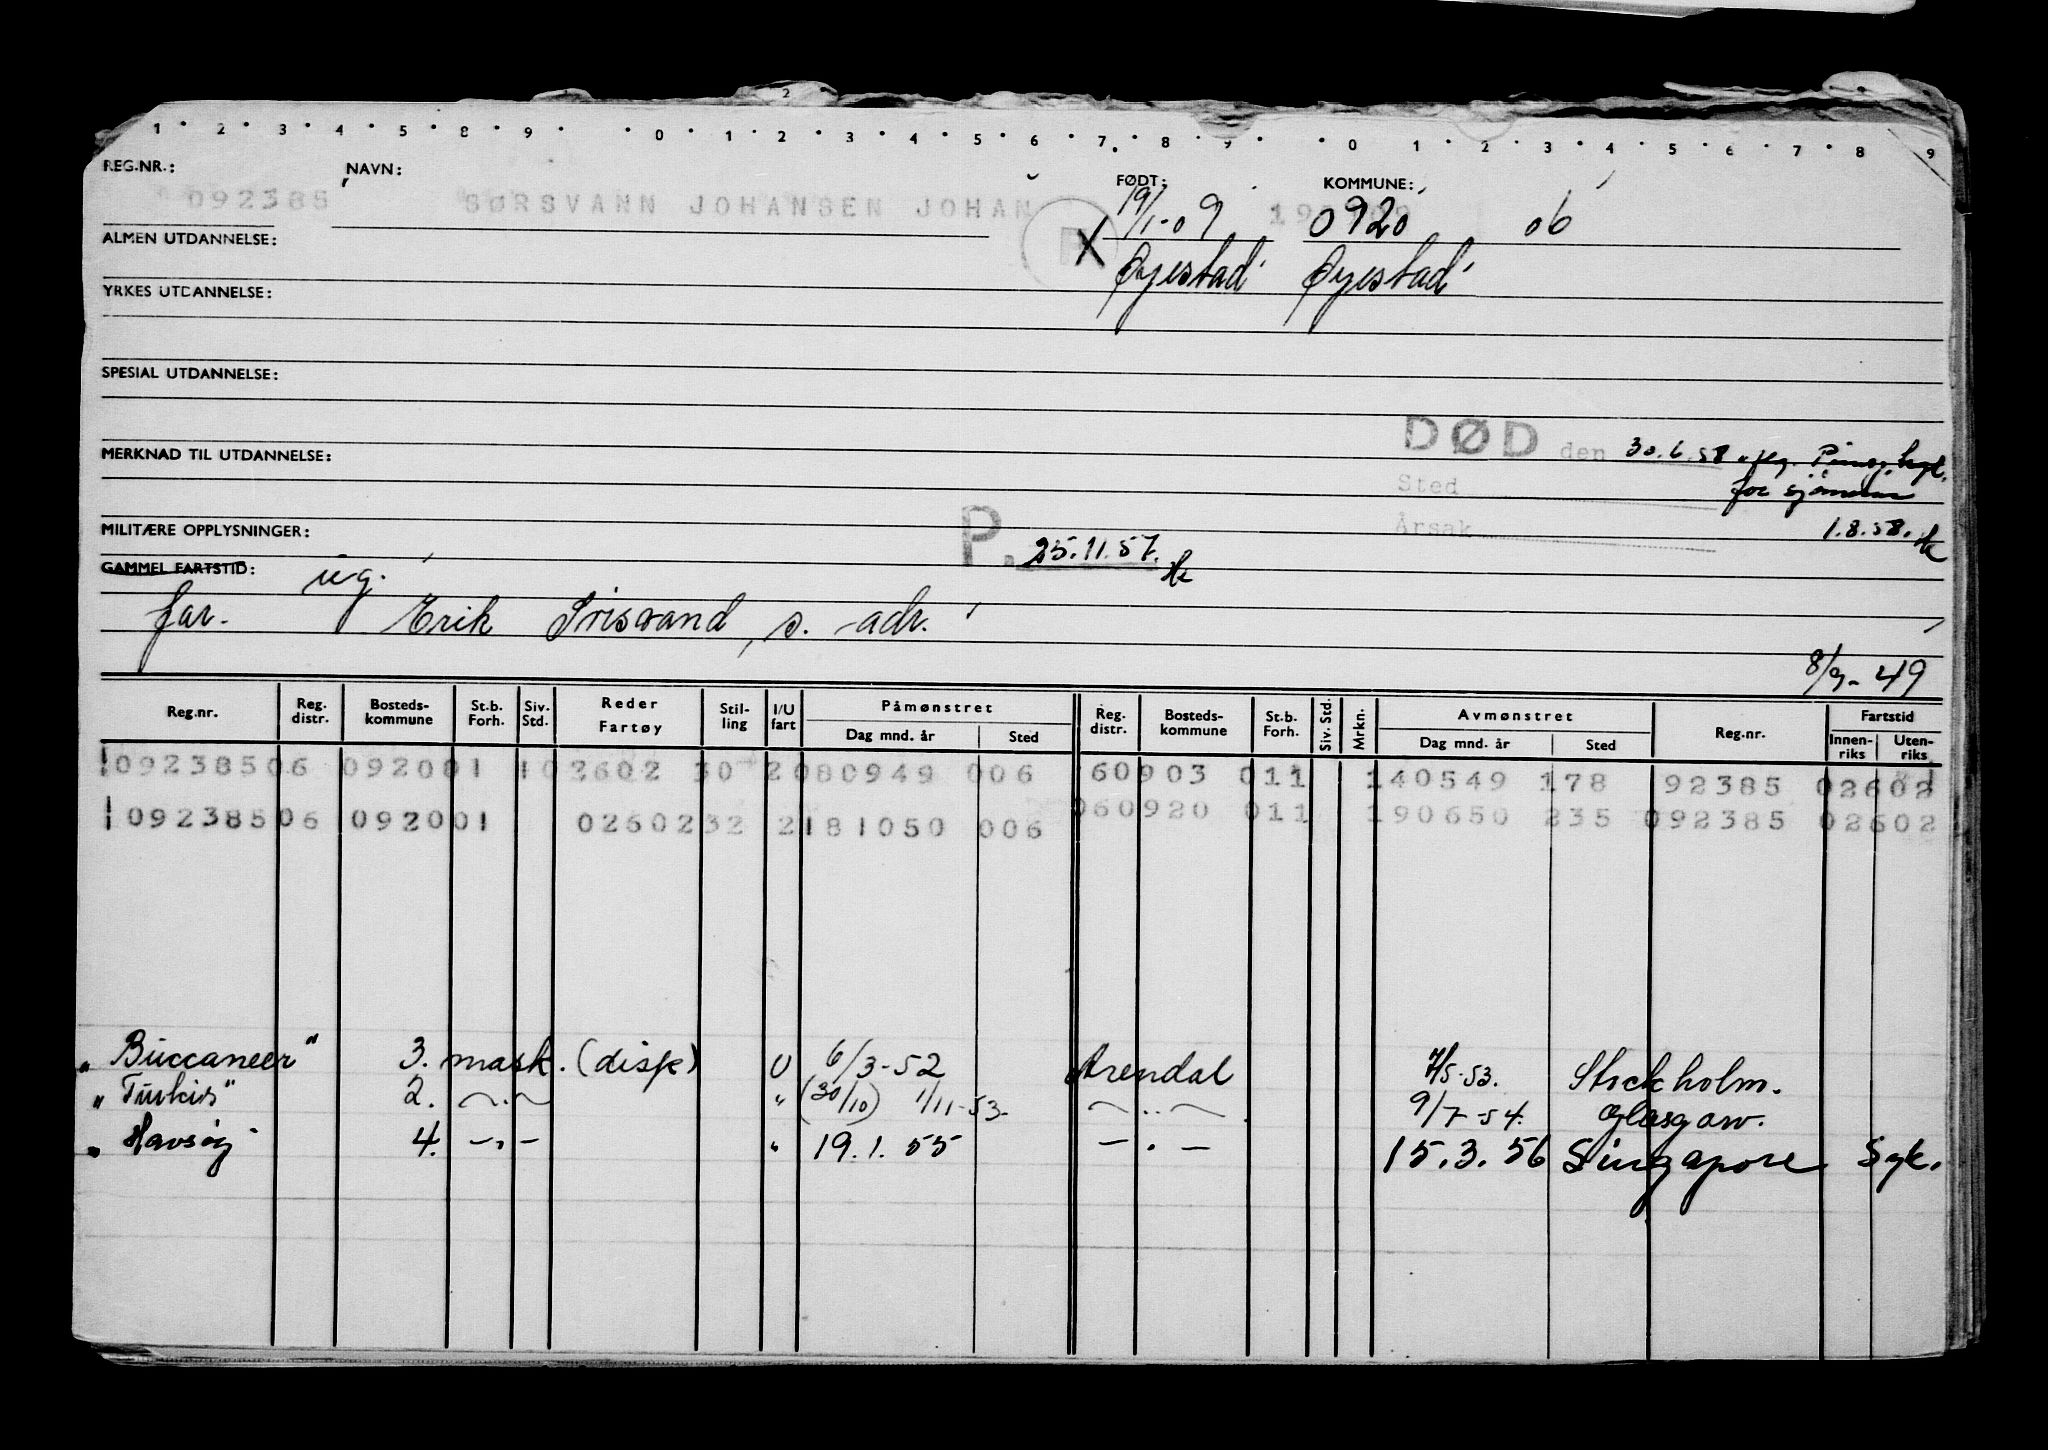 1 · 2 · 3 · 4 · 5 · 8 · 9 · · 0 · 1 · 2 · 3 · 4 · 5 · 6 · 7 · 8 · 9 · · 0 · 1 · 2 · 3 · 4 · 5 · 6 · 7 · 8 · 9
REG.NR.: NAVN: FØDT: KOMMUNE:
092385 SØRSVANN JOHANSEN JOHAN P X 19/1-09 0920 06
ALMEN UTDANNELSE: Øyestad Øyestad
YRKES UTDANNELSE:
SPESIAL UTDANNELSE:
DØD den 30.6.58
MERKNAD TIL UTDANNELSE:
Sted for sjømenn
MILITÆRE OPPLYSNINGER: Årsak 1.8.58.
P. 25.11.57.
GAMMEL FARTSTID: ug.
far. Erik s. adr.
8/9-49
Reg.nr. Reg. distr. Bosteds-kommune St.b. Forh. Siv. Std. Reder Fartøy Stil-ling I/U fart Påmønstret Dag mnd. år Sted Reg. distr. Bosteds-kommune St.b. Forh. Siv. Std. Mrkn. Avmønstret Dag mnd. år Sted Reg.nr. Fartstid Innen-riks Uten-riks
109238506 092001 10 2602 30 2080949 006 60903 011 140549 178 92385 02602
109238506 092001 0260232 2181050 006 060920 011 190650 235 092385 02602
"Buccaneer" 3. mask. (disp) U 6/3-52 Arendal 7/5-53. Stockholm.
" 2. -"- " (30/10) 1/11-53- -"- 9/7-54. Glasgow.
"Havsøy 4. -"- " 19.1.55 -"- 15.3.56 Singapore Syk.